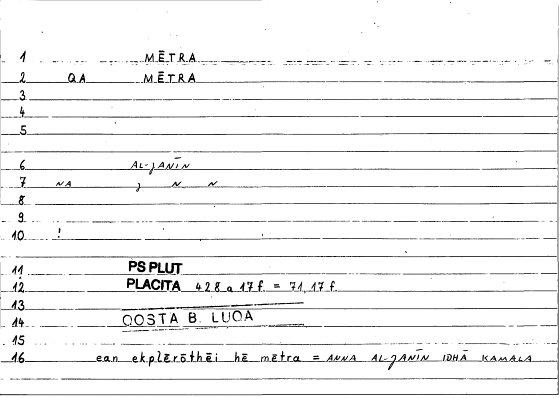 1 MĒTRA
2 QA MĒTRA
3
4
5
6 AL-JANĪN
7 NA J N N
8
9
10 !
11 PS PLUT
12 PLACITA 428 a 17 f = 71, 17 f.
13
14 QOSTA B. LUQA
15
16 ean ekplērōthēi hē mētra = ANNA AL-JANĪN IDHĀ KAMALA